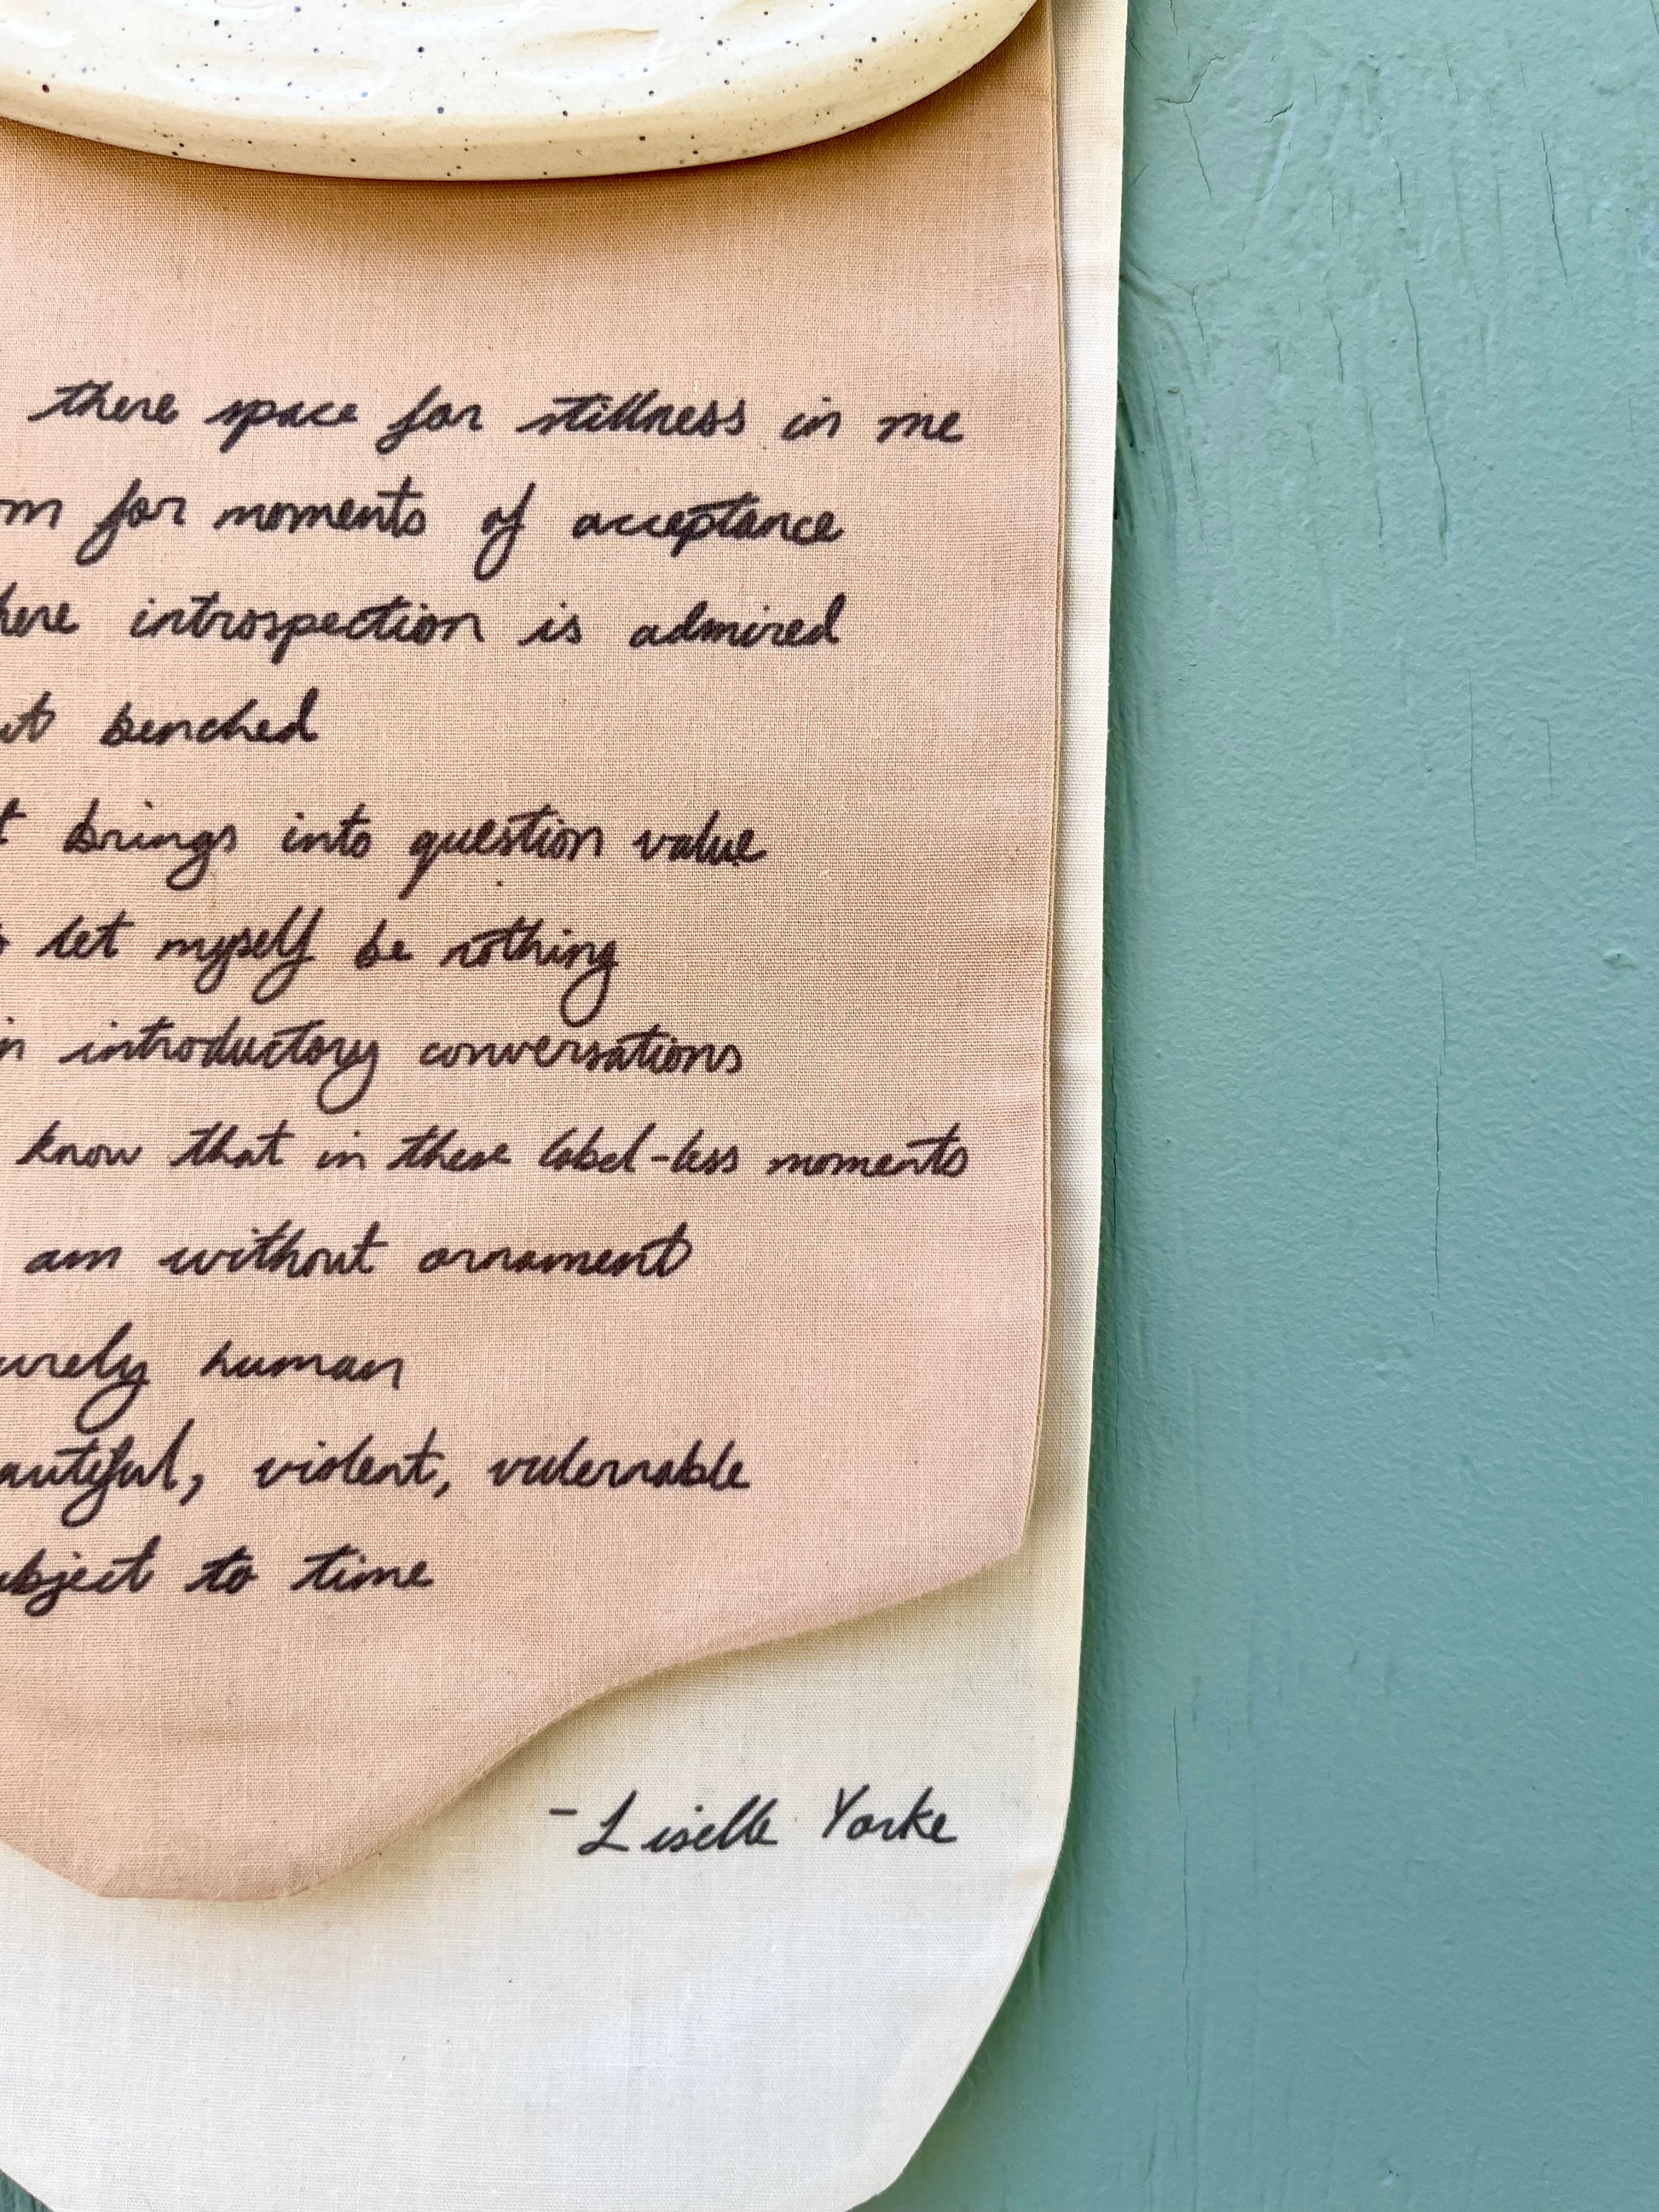 there space for stillness in me
om for moments of acceptance
here introspection is admired
ut benched
t brings into question value
let myself be nothing
in introductory conversations
know that in these label-less moments
am without ornament
urely human
autiful, violent, vulernable
bject to time
- Liselle Yorke